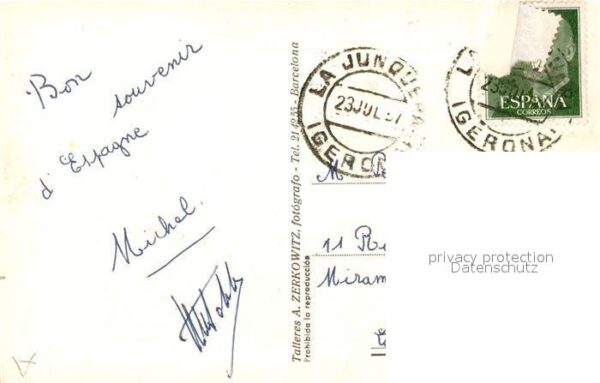 Bon
souvenir
d'Espagne
Michel
Talleres A. ZERKOWITZ, fotógrafo - Tel. 21 Barcelona
Prohibida la reproducción
LA JUNQUERA
23 JUL 57
(GERONA)
ESPAÑA
CORREOS
LA
23
(GERONA)
M
11
Miram
privacy protection
Datenschutz